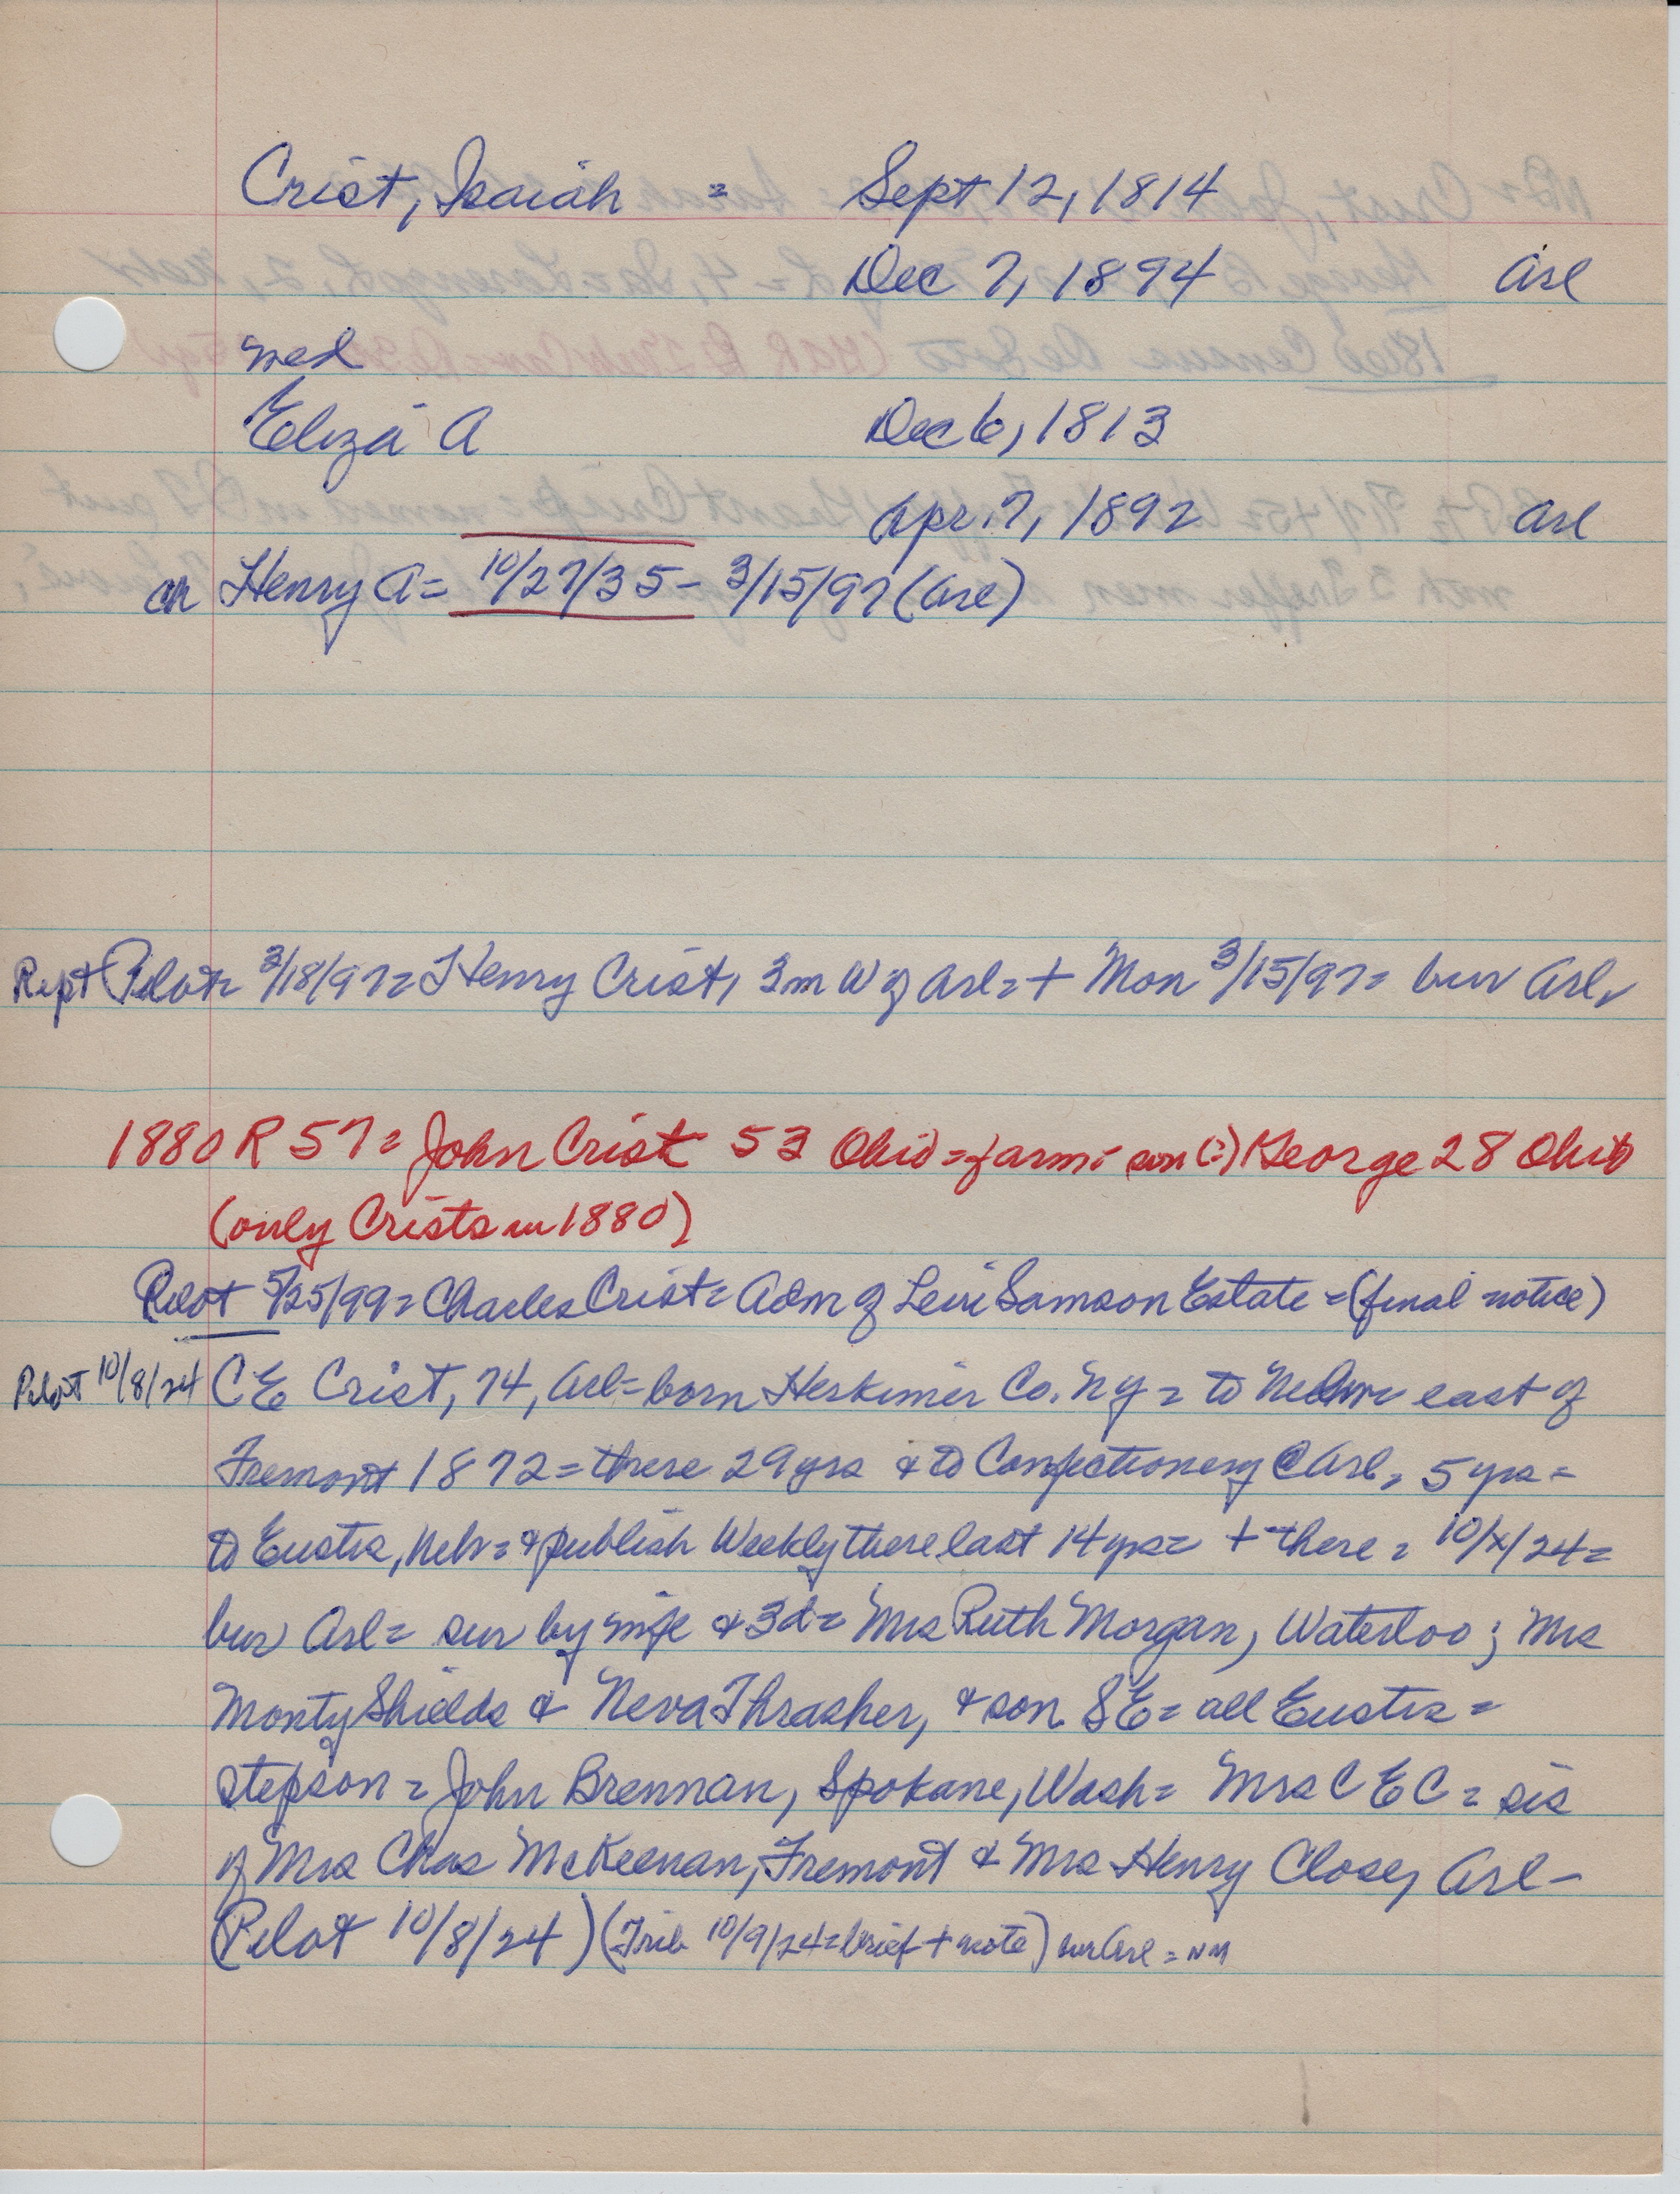 Crist, Isaiah = Sept 12, 1814
Dec 7, 1894 Arl
med
Eliza A Dec 6, 1813
Apr. 7, 1892 Arl
ch Henry A = 10/27/35 - 3/15/97 (Arl)
Rept Pilot = 3/18/97 = Henry Crist, 3m W of Arl = + Mon 3/15/97 = bur Arl
1880 R 57 = John Crist 53 Ohio = farm = son (?) George 28 Ohio
(only Crists in 1880)
Pilot 5/25/99 = Charles Crist = Adm of Levi Samson Estate = (final notice)
Pilot 10/8/24 C E Crist, 74, Arl = born Herkimer Co. NY = to east of
Fremont 1872 = there 29 yrs & to Confectionery @ Arl, 5 yrs =
to Eustis, Neb = & publish Weekly there last 14 yrs = + there = 10/x/24 =
bur Arl = sur by wife & 3d = Mrs Ruth Morgan, Waterloo; Mrs
Monty Shields & Neva Thrasher, & son SE = all Eustis =
stepson = John Brennan, Spokane, Wash = Mrs C E C = sis
of Mrs Chas McKeenan, Fremont & Mrs Henry Close, Arl -
(Pilot 10/8/24) (Trib 10/9/24 = brief + note) bur Arl = NM